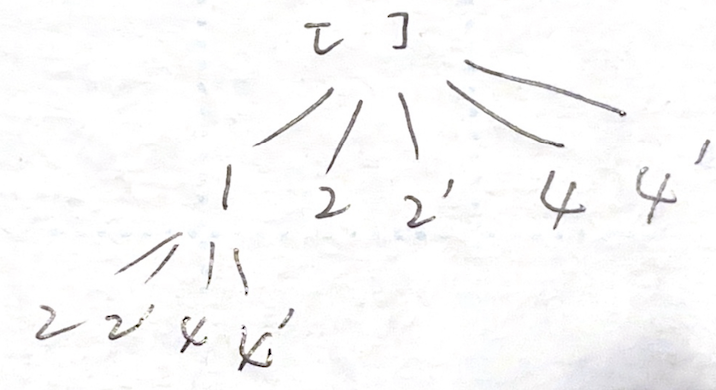 [ ]
1 2 2' 4 4'
2 2' 4 4'